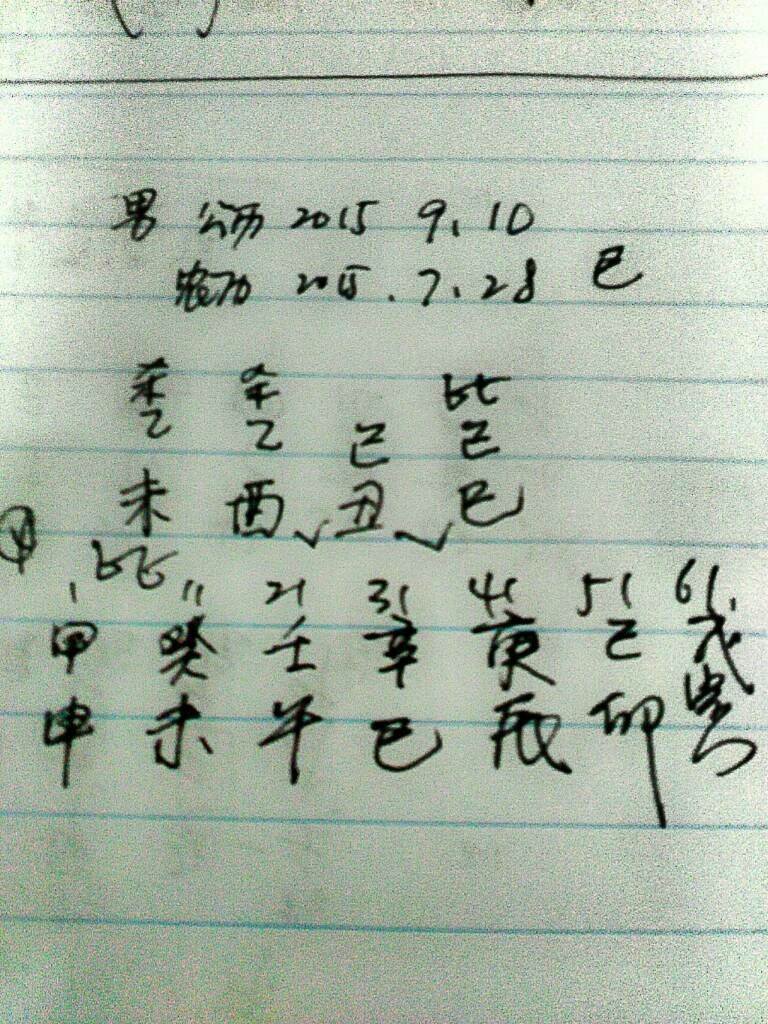 男 公历 2015 9.10
农历 2015.7.28 巳
杀 杀 比
乙 乙 己 己
未 酉 丑 巳
比
1 11 21 31 41 51 61
甲 癸 壬 辛 庚 己 戊
申 未 午 巳 辰 卯 寅